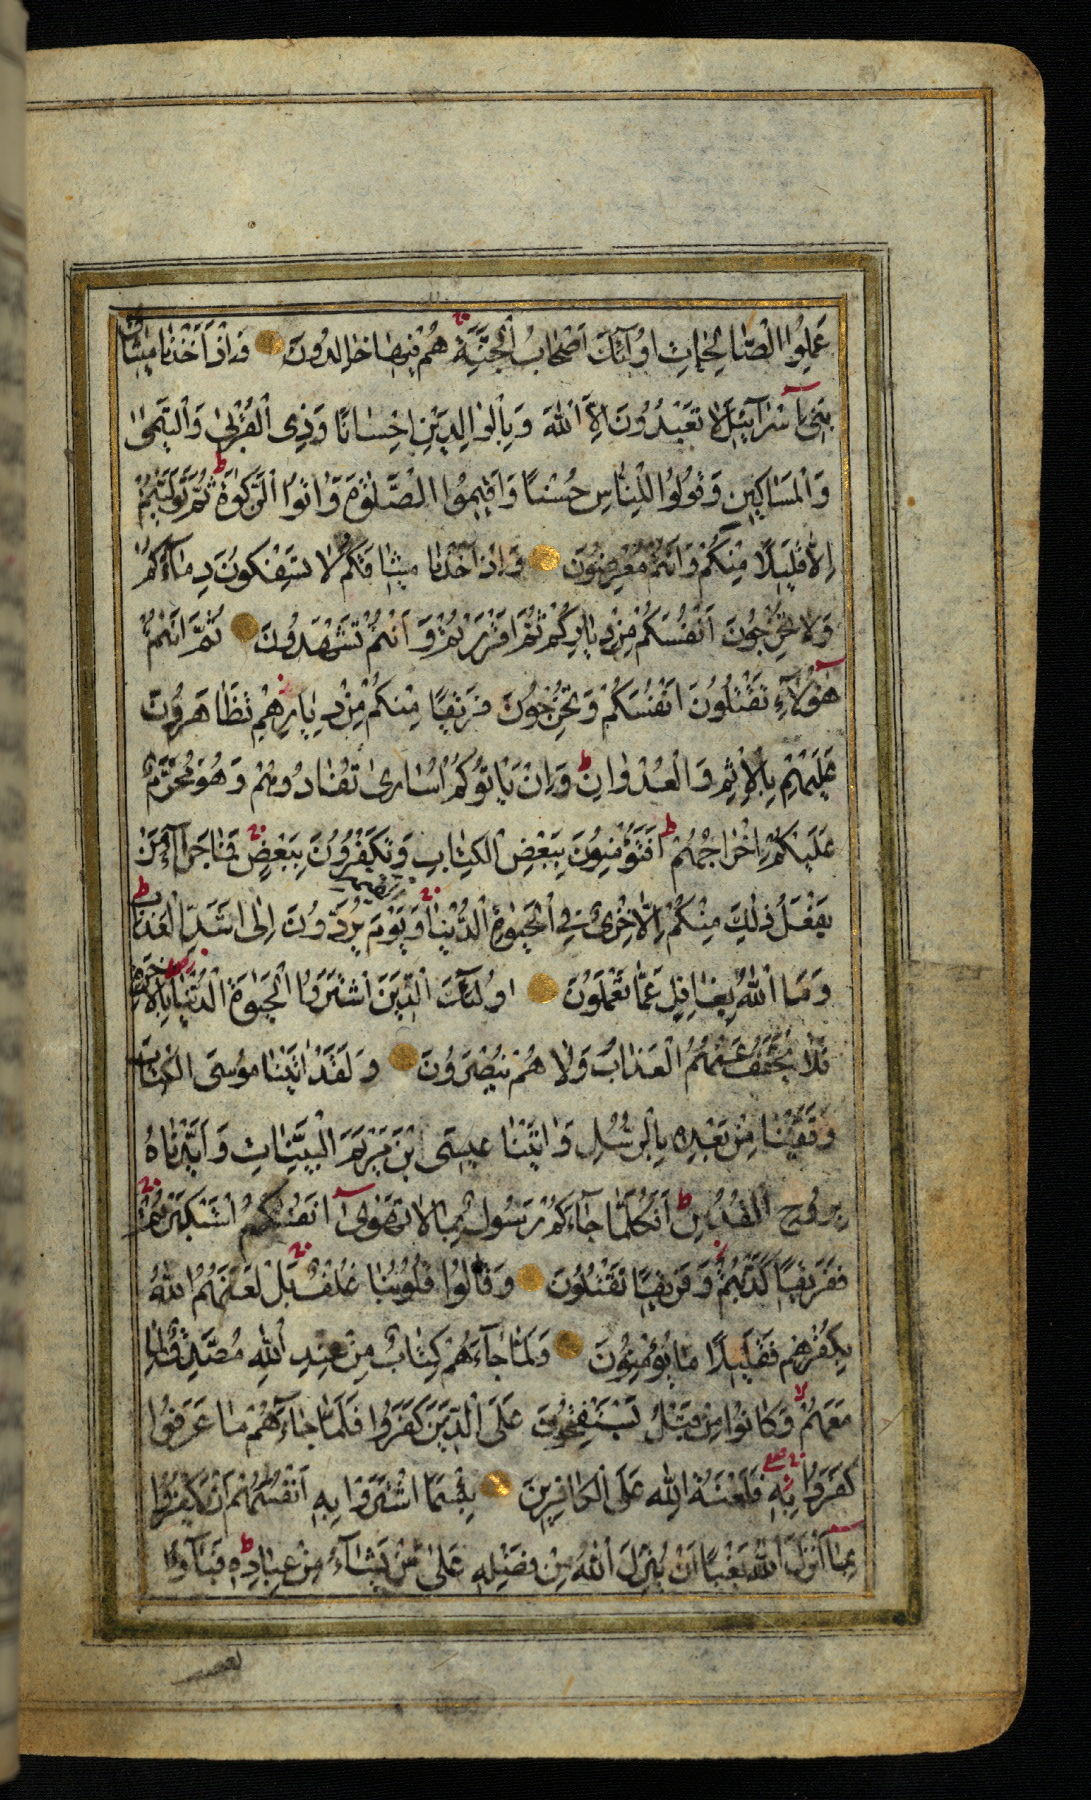 عَمِلُوا الصَّالِحَاتِ اُولٰئِكَ اَصْحَابُ الْجَنَّةِ هُمْ فِيهَا خَالِدُونَ وَاِذْ اَخَذْنَا مِيثَاقَ
بَنِي اِسْرَآئِيلَ لَا تَعْبُدُونَ اِلَّا اللّٰهَ وَبِالْوَالِدَيْنِ اِحْسَانًا وَذِي الْقُرْبٰى وَالْيَتَامٰى
وَالْمَسَاكِينِ وَقُولُوا لِلنَّاسِ حُسْنًا وَاَقِيمُوا الصَّلٰوةَ وَاٰتُوا الزَّكٰوةَ ثُمَّ تَوَلَّيْتُمْ
اِلَّا قَلِيلًا مِنْكُمْ وَاَنْتُمْ مُعْرِضُونَ وَاِذْ اَخَذْنَا مِيثَاقَكُمْ لَا تَسْفِكُونَ دِمَآءَكُمْ
وَلَا تُخْرِجُونَ اَنْفُسَكُمْ مِنْ دِيَارِكُمْ ثُمَّ اَقْرَرْتُمْ وَاَنْتُمْ تَشْهَدُونَ ثُمَّ اَنْتُمْ
هٰؤُلَآءِ تَقْتُلُونَ اَنْفُسَكُمْ وَتُخْرِجُونَ فَرِيقًا مِنْكُمْ مِنْ دِيَارِهِمْ تَظَاهَرُونَ
عَلَيْهِمْ بِالْاِثْمِ وَالْعُدْوَانِ وَاِنْ يَاْتُوكُمْ اُسَارٰى تُفَادُوهُمْ وَهُوَ مُحَرَّمٌ
عَلَيْكُمْ اِخْرَاجُهُمْ اَفَتُؤْمِنُونَ بِبَعْضِ الْكِتَابِ وَتَكْفُرُونَ بِبَعْضٍ فَمَا جَزَآءُ مَنْ
يَفْعَلُ ذٰلِكَ مِنْكُمْ اِلَّا خِزْىٌ فِي الْحَيٰوةِ الدُّنْيَا وَيَوْمَ الْقِيٰمَةِ يُرَدُّونَ اِلٰى اَشَدِّ الْعَذَابِ
وَمَا اللّٰهُ بِغَافِلٍ عَمَّا تَعْمَلُونَ اُولٰئِكَ الَّذِينَ اشْتَرَوُا الْحَيٰوةَ الدُّنْيَا بِالْاٰخِرَةِ
فَلَا يُخَفَّفُ عَنْهُمُ الْعَذَابُ وَلَا هُمْ يُنْصَرُونَ وَلَقَدْ اٰتَيْنَا مُوسَى الْكِتَابَ
وَقَفَّيْنَا مِنْ بَعْدِهِ بِالرُّسُلِ وَاٰتَيْنَا عِيسَى ابْنَ مَرْيَمَ الْبَيِّنَاتِ وَاَيَّدْنَاهُ
بِرُوحِ الْقُدُسِ اَفَكُلَّمَا جَآءَكُمْ رَسُولٌ بِمَا لَا تَهْوٰى اَنْفُسُكُمُ اسْتَكْبَرْتُمْ
فَفَرِيقًا كَذَّبْتُمْ وَفَرِيقًا تَقْتُلُونَ وَقَالُوا قُلُوبُنَا غُلْفٌ بَلْ لَعَنَهُمُ اللّٰهُ
بِكُفْرِهِمْ فَقَلِيلًا مَا يُؤْمِنُونَ وَلَمَّا جَآءَهُمْ كِتَابٌ مِنْ عِنْدِ اللّٰهِ مُصَدِّقٌ لِمَا
مَعَهُمْ وَكَانُوا مِنْ قَبْلُ يَسْتَفْتِحُونَ عَلَى الَّذِينَ كَفَرُوا فَلَمَّا جَآءَهُمْ مَا عَرَفُوا
كَفَرُوا بِهِ فَلَعْنَةُ اللّٰهِ عَلَى الْكَافِرِينَ بِئْسَمَا اشْتَرَوْا بِهِ اَنْفُسَهُمْ اَنْ يَكْفُرُوا
بِمَا اَنْزَلَ اللّٰهُ بَغْيًا اَنْ يُنَزِّلَ اللّٰهُ مِنْ فَضْلِهِ عَلٰى مَنْ يَشَآءُ مِنْ عِبَادِهِ فَبَآؤُا
بغضب